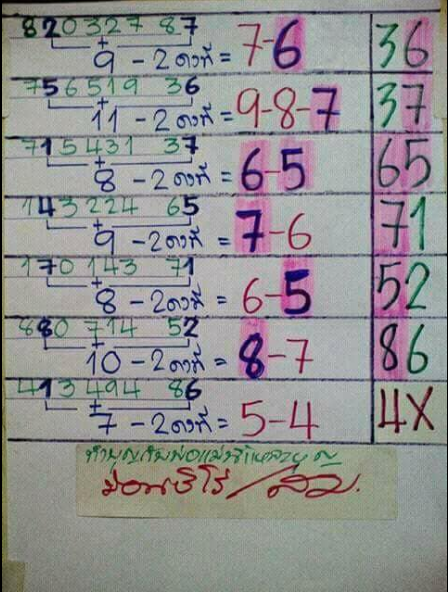 820327 87
9 - 2 ตงที่ = 7-6 36
756519 36
11 - 2 ตงที่ = 9-8-7 37
715431 37
8 - 2 ตงที่ = 6-5 65
143224 65
9 - 2 ตงที่ = 7-6 71
170143 71
8 - 2 ตงที่ = 6-5 52
880714 52
10 - 2 ตงที่ = 8-7 86
413494 86
7 - 2 ตงที่ = 5-4 4X